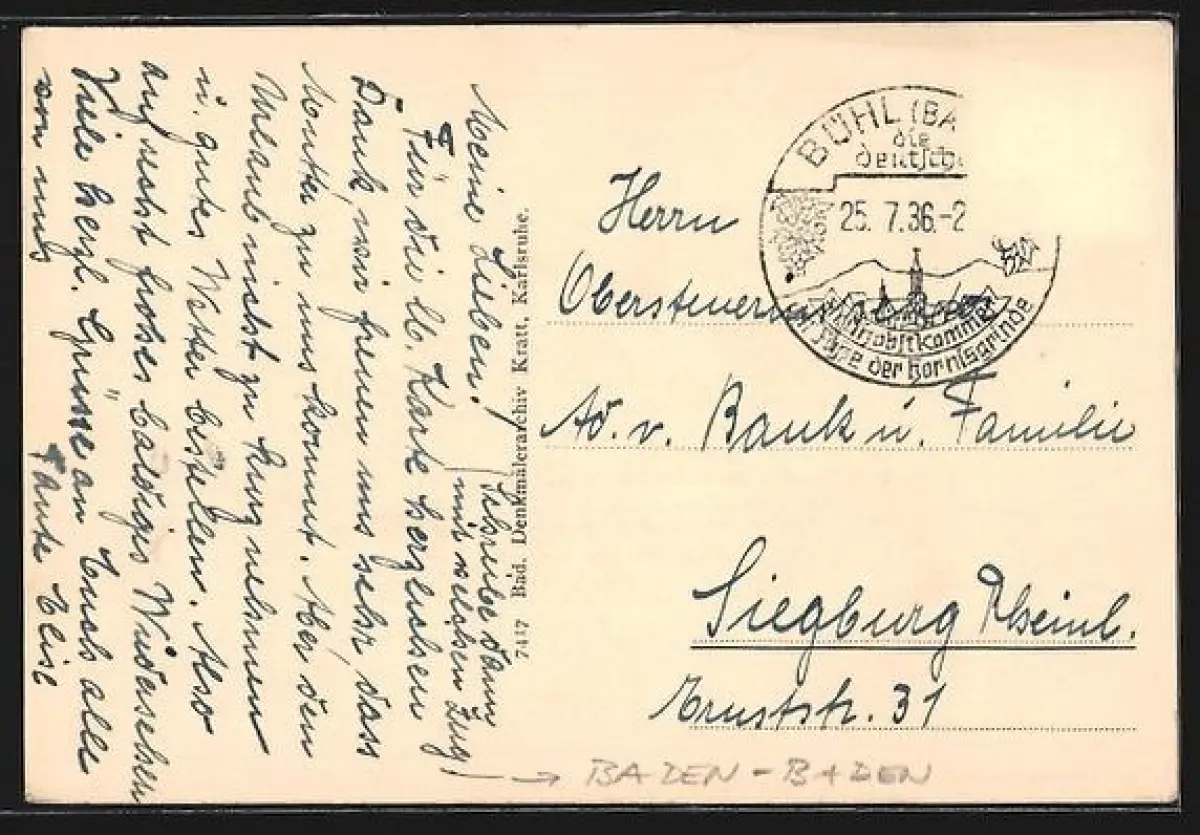 Meine Lieben!
Für die lb. Karte herzlichen
Dank, wir freuen uns sehr, dass
Mutter zu uns kommt. Aber den
Urlaub nicht zu kurz nehmen
u. gutes Wetter bestellen. Also
auf recht frohes baldiges Wiedersehen
Viele herzl. Grüsse an Euch alle
von uns
Tante Elise
Schreibe dann
mit welchen Zug
7417 Bad. Denkmälerarchiv Kratt, Karlsruhe.
BÜHL (BA
die
deutsche
25. 7.36.-2
der Hornisgrinde
Herrn
Ad. v. Bank u. Familie
Siegburg Rheinl.
31
→ BADEN-BADEN